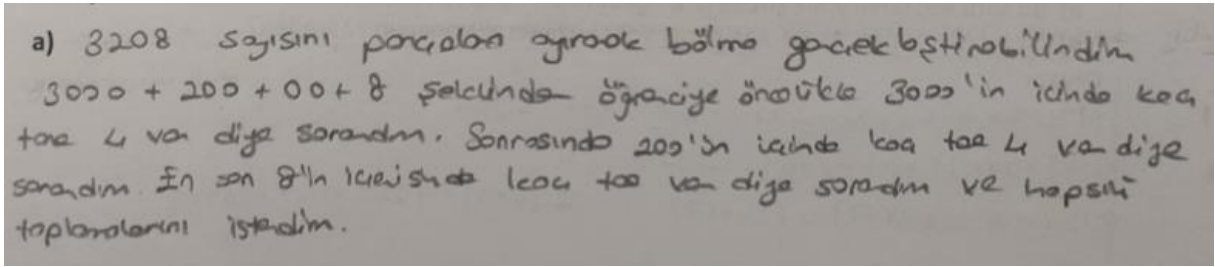 a) 3208 sayısını parçaları ayırarak bölme gerçekleştirebilirdim
3000 + 200 + 00 + 8 şeklinde öğrenciye öncelikle 3000'in içinde kaç
tane 4 var diye sorardım. Sonrasında 200'ün içinde kaç tane 4 var diye
sorardım. En son 8'in içerisinde kaç tane var diye sorardım ve hepsini
toplamalarını isterdim.